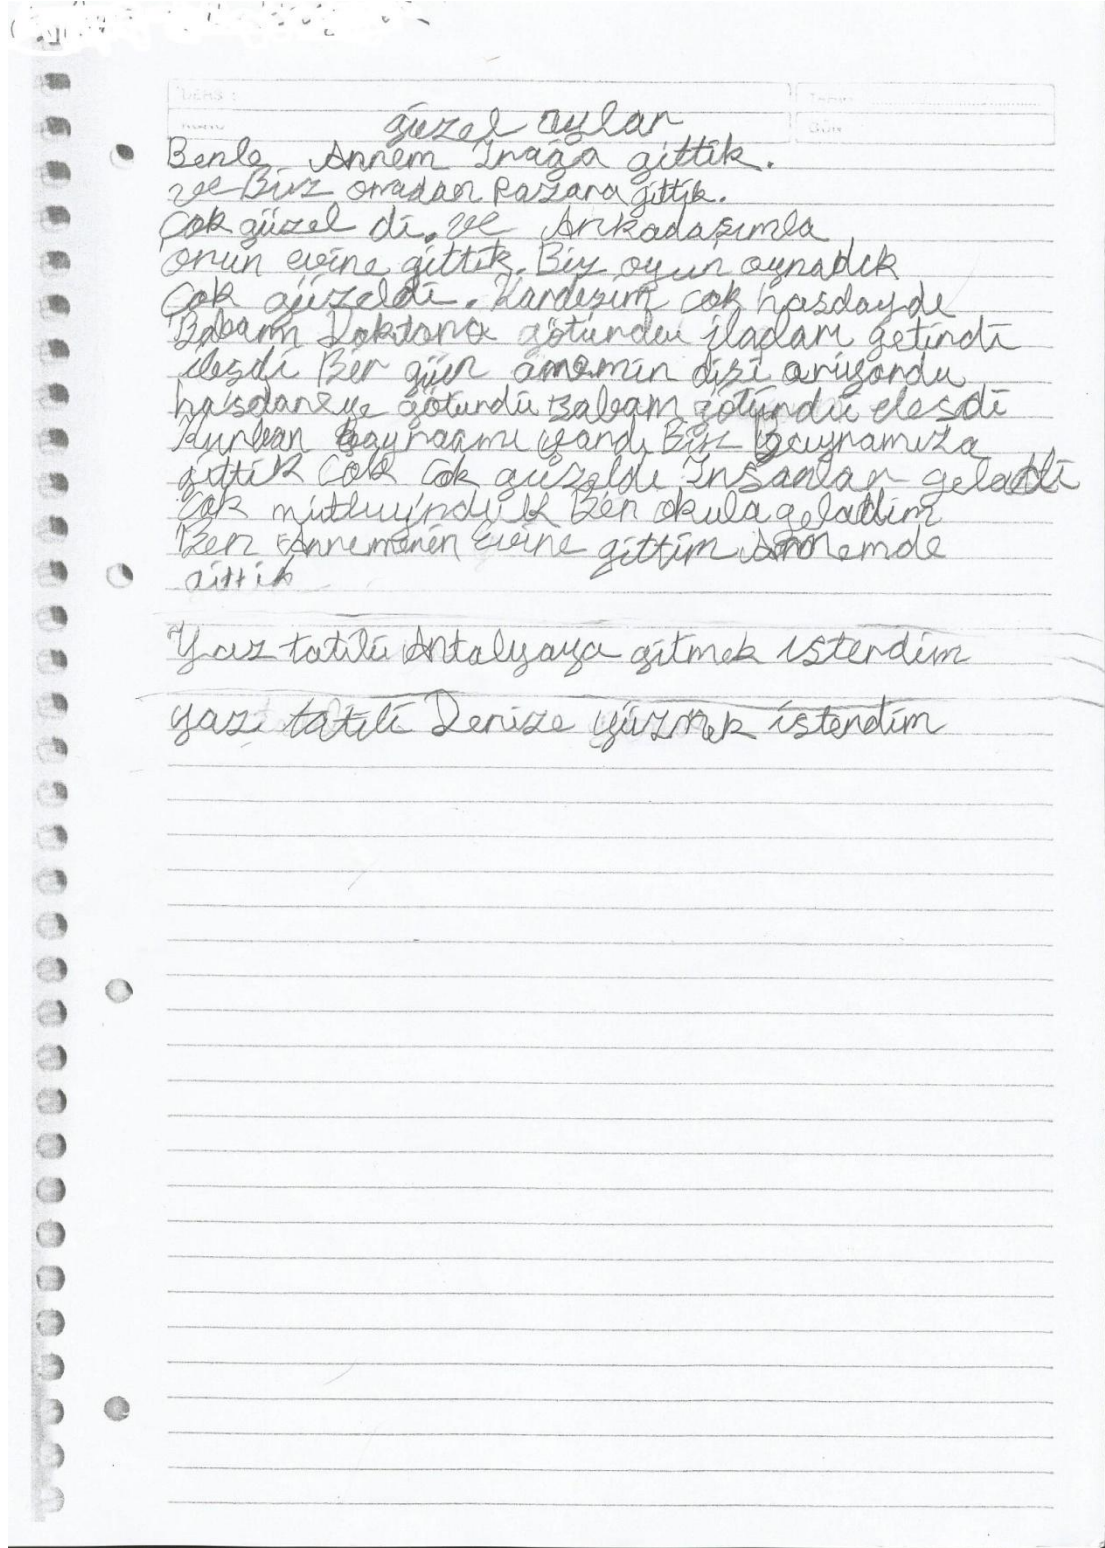 güzel aylar
Benle Annem Irağa gittik.
ve Biz oradan Pazara gittik.
çok güzel di. ve Arkadaşımla
onun evine gittik. Biz oyun oynadik
Çok güzeldi. Kardeşim cok hasdayde
Babam Doktora götürdü iladarı getirdi
ilesdi Bir gün anemin dişi ariyordu
hasdaneye götürdü Babam götürdü elesdi
Kurban Bayraamı vardı Biz bayramıza
gittik Cok Cok güzeldi İnsanlar geladi
Cok mutluyinduk Ben okula geladim
Ben Annemenen Evine gittim Annemde
gittik
Yaz tatili Antalyaya gitmek isterdim
yaz tatili Denize yüzmek isterdim